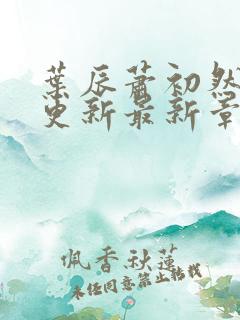 葉辰蕭初然
更新最新章
佩香秋蓮
未经同意禁止转载